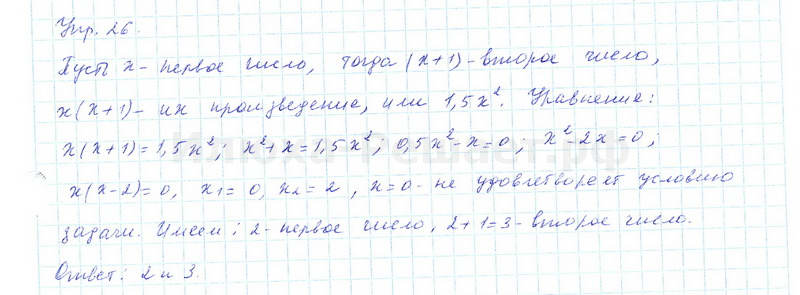 Упр. 26.
Пусть x - первое число, тогда (x+1) - второе число,
x(x+1) - их произведение, или 1,5x². Уравнение:
x(x+1)=1,5x²; x²+x=1,5x²; 0,5x²-x=0; x²-2x=0;
x(x-2)=0, x₁=0, x₂=2, x=0 - не удовлетворяет условию
задачи. Имеем: 2 - первое число, 2+1=3 - второе число.
Ответ: 2 и 3.